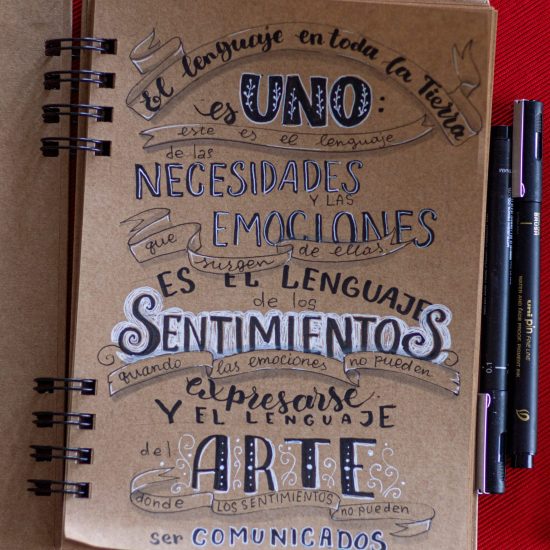 El lenguaje en toda la Tierra
es UNO:
este es el lenguaje
de las
NECESIDADES
Y LAS
EMOCIONES
que surgen de ellas.
ES EL LENGUAJE
de los
SENTIMIENTOS
quando las emociones no pueden
expresarse.
Y EL LENGUAJE
del ARTE
donde LOS SENTIMIENTOS no pueden
ser COMUNICADOS
BRUSH
uni pin FINE LINE
WATER AND FADE PROOF PIGMENT INK
0.1